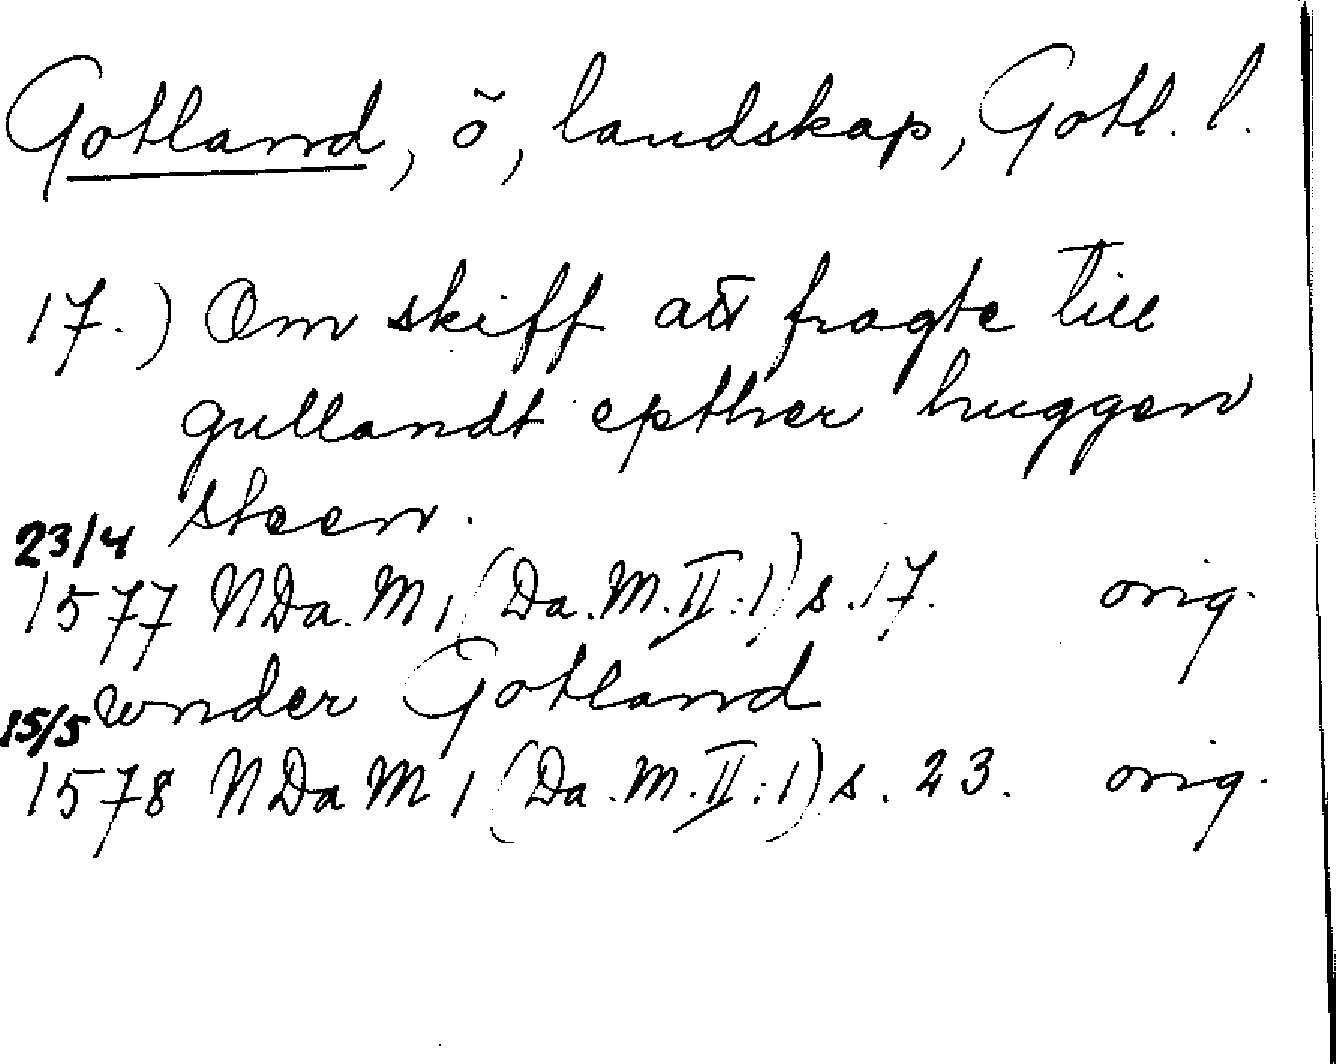 Gotland, ö, landskap, Gotl. l.
17.) Om skiff att fragte till
gullandt epther huggen
steen.
23/4
1577 NDa. M 1 (Da. M. II:1) s. 17. orig.
15/5 wnder Gotland
1578 NDa M 1 (Da. M. II:1) s. 23. orig.